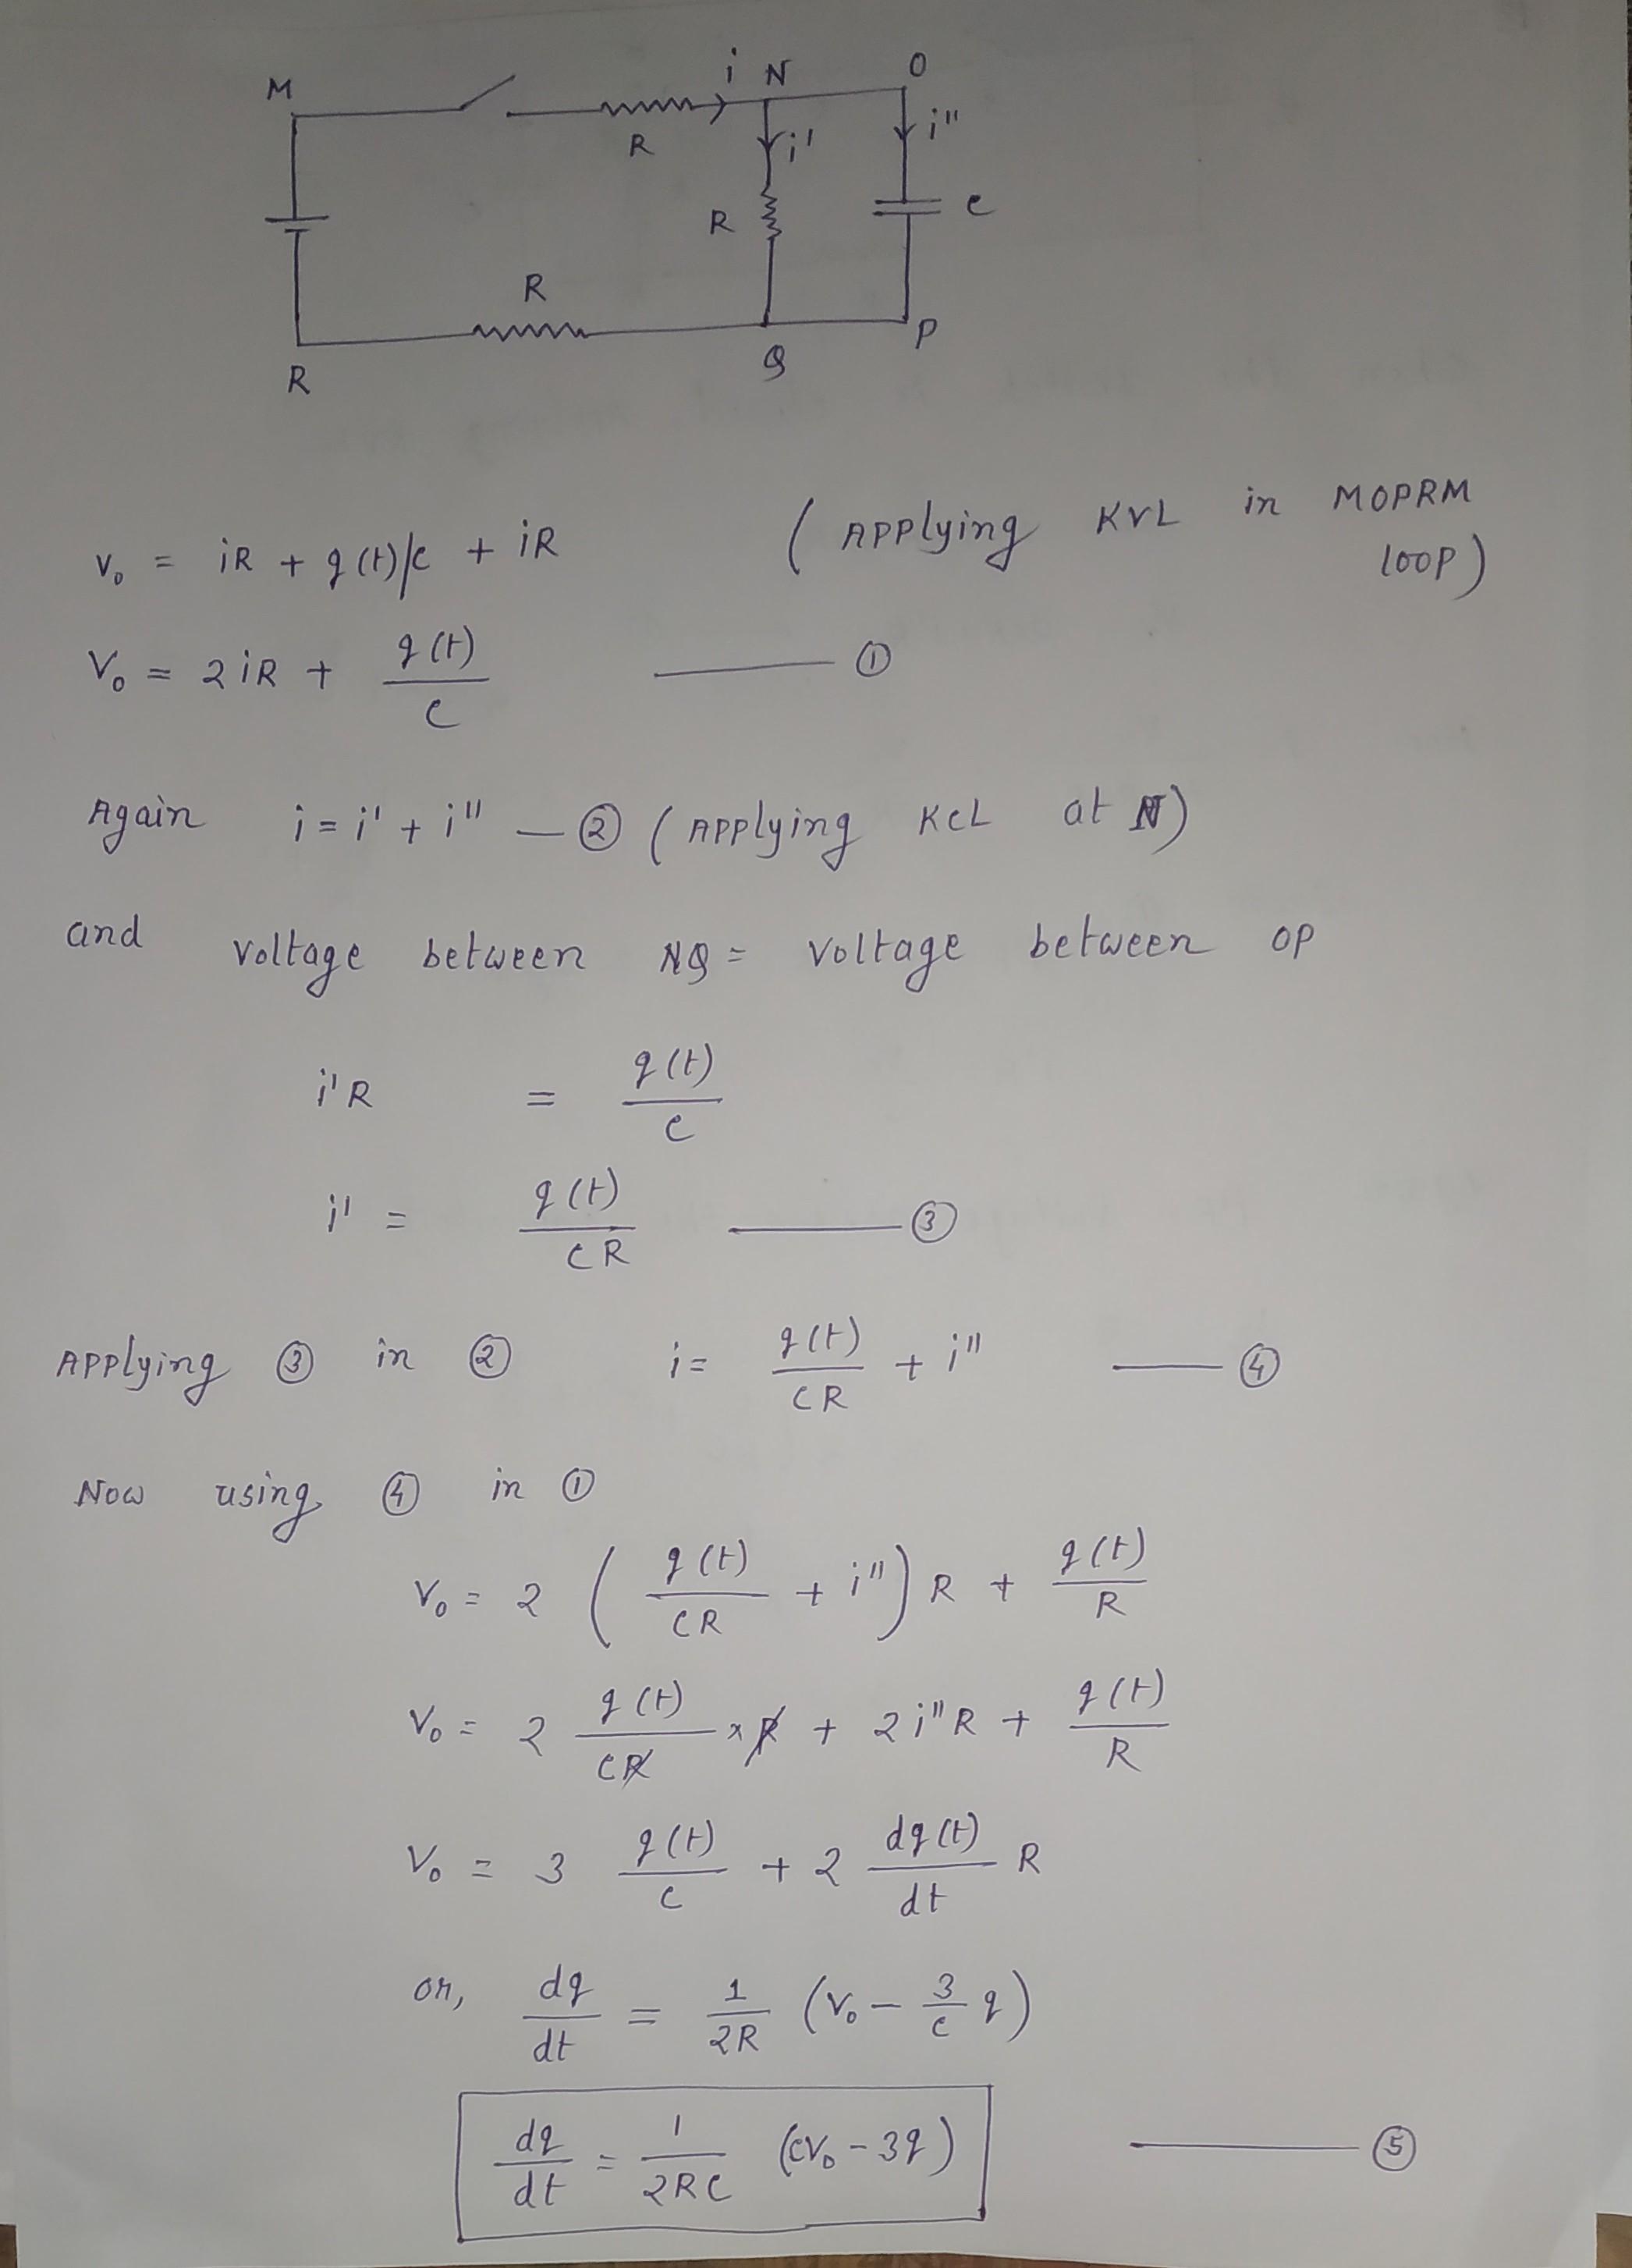 M
i N
O
R
i'
i"
R
c
R
R
Q
P
V₀ = iR + q(t)/c + iR (Applying KVL in MOPRM loop)
V₀ = 2iR + q(t)/c —— ①
Again i = i' + i" — ② (Applying KCL at N)
and voltage between NQ = voltage between OP
i'R = q(t)/c
i' = q(t)/CR —— ③
Applying ③ in ② i = q(t)/CR + i" —— ④
Now using ④ in ①
V₀ = 2 ( q(t)/CR + i" ) R + q(t)/R
V₀ = 2 q(t)/CR × R + 2i"R + q(t)/R
V₀ = 3 q(t)/c + 2 dq(t)/dt R
or, dq/dt = 1/2R (V₀ - 3/c q)
dq/dt = 1/2RC (CV₀ - 3q) —— ⑤